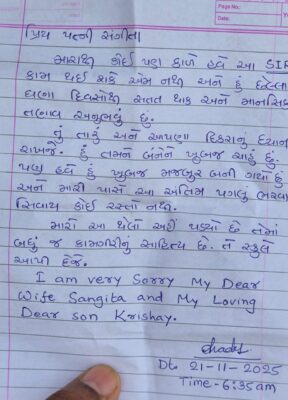 Page No.:
Date:
પ્રિય પત્ની સંગીતા
મારાથી કોઈ પણ કાળે હવે આ SIR
કામ થઈ શકે એમ નથી અને હું છેલ્લા
ઘણા દિવસોથી સતત થાક અને માનસિક
તણાવ અનુભવું છું.
તું તારું અને આપણા દિકરાનું ધ્યાન
રાખજે. હું તમને બંનેને ખુબજ ચાહું છું.
પણ હવે હું ખુબજ મજબુર બની ગયો છું
અને મારી પાસે આ અંતિમ પગલું ભરવા
સિવાય કોઈ રસ્તો નથી.
મારો આ થેલો અહીં પડ્યો છે તેમાં
બધું જ કામગીરીનું સાહિત્ય છે. તે સ્કુલે
આપી દેજે.
I am very Sorry My Dear
Wife Sangita and My Loving
Dear son Krishay.
Dt. 21-11-2025
Time-6:35am